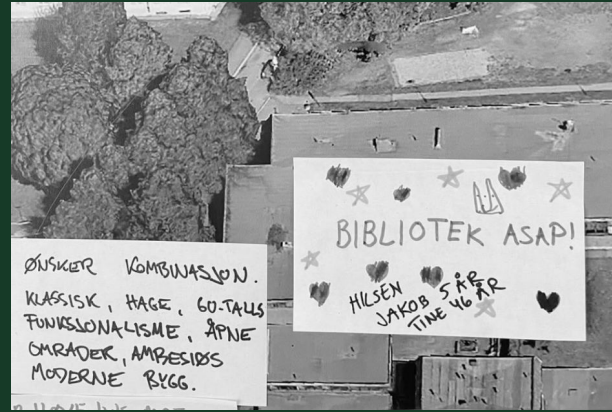 ØNSKER KOMBINASJON.
KLASSISK, HAGE, 60-TALLS
FUNKSJONALISME, ÅPNE
OMRÅDER, AMBISIØS
MODERNE BYGG.
BIBLIOTEK ASAP!
HILSEN
JAKOB 5 ÅR
TINE 46 ÅR